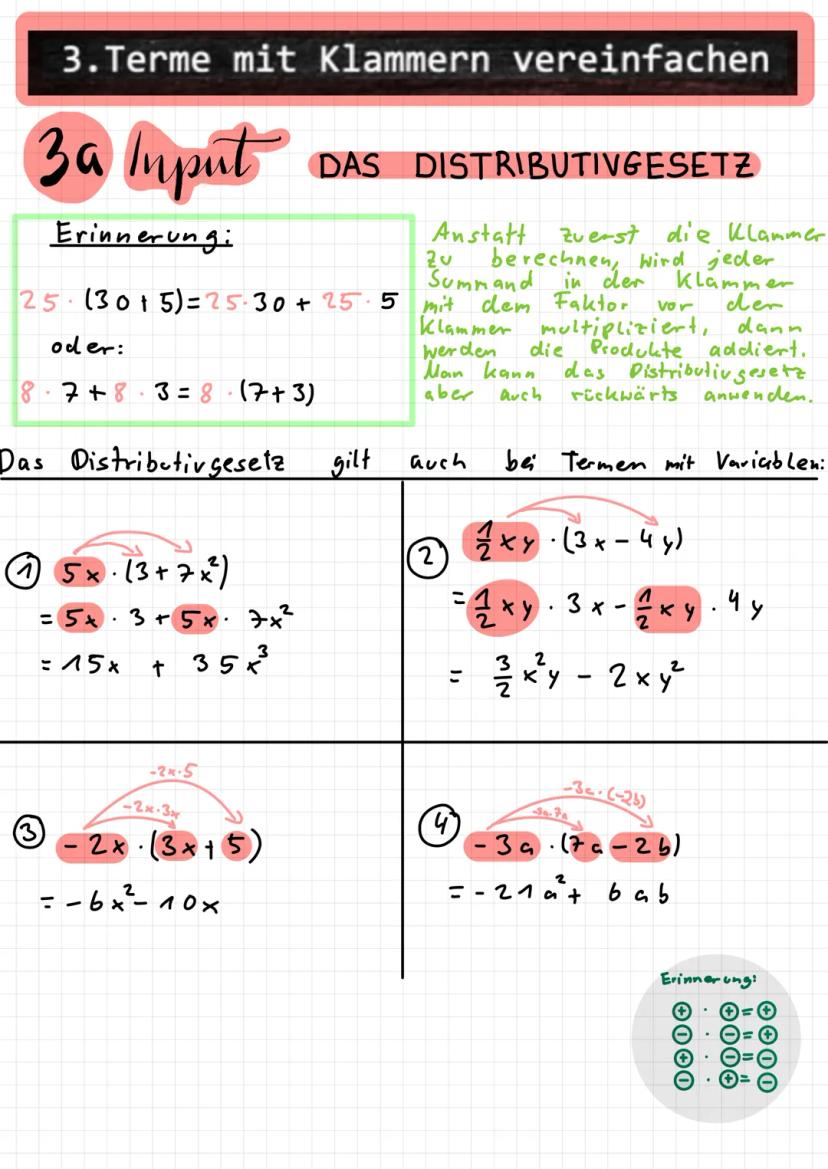 3.Terme mit Klammern vereinfachen
3a Input DAS DISTRIBUTIVGESETZ
Erinnerung:
25 · (30+5)=25·30 + 25 · 5
oder:
8 · 7 + 8 · 3 = 8 · (7+3)
Anstatt zuerst die Klammer
zu berechnen, wird jeder
Summand in der Klammer
mit dem Faktor vor der
Klammer multipliziert, dann
werden die Produkte addiert.
Man kann das Distributivgesetz
aber auch rückwärts anwenden.
Das Distributivgesetz gilt auch bei Termen mit Variablen:
① 5x · (3 + 7x²)
= 5x · 3 + 5x · 7x²
= 15x + 35x³
② 1/2 xy · (3x - 4y)
= 1/2 xy · 3x - 1/2 xy · 4y
= 3/2 x²y - 2xy²
-2x·5
-2x·3x
③ -2x · (3x + 5)
= -6x² - 10x
-3a·(-2b)
-3a·7a
④ -3a · (7a - 2b)
= -21a² + 6ab
Erinnerung:
⊕ · ⊕ = ⊕
⊖ · ⊖ = ⊕
⊕ · ⊖ = ⊖
⊖ · ⊕ = ⊖